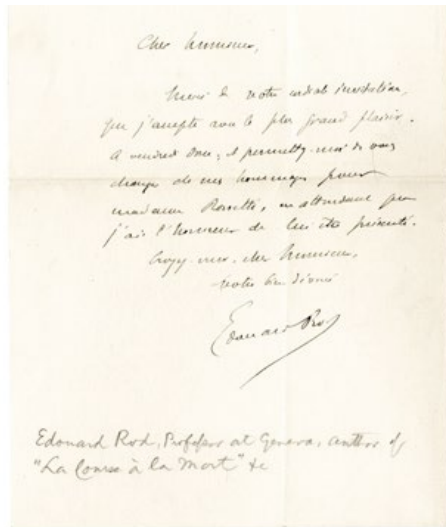 Cher Monsieur,
Merci de votre cordiale invitation,
que j'accepte avec le plus grand plaisir.
A vendredi donc, et permettez-moi de vous
charger de mes hommages pour
madame Rossetti, en attendant que
j'aie l'honneur de lui être présenté.
Croyez-moi, cher Monsieur,
votre bien dévoué
Edouard Rod
Edouard Rod, Professor at Geneva, author of
"La Course à la Mort" &c